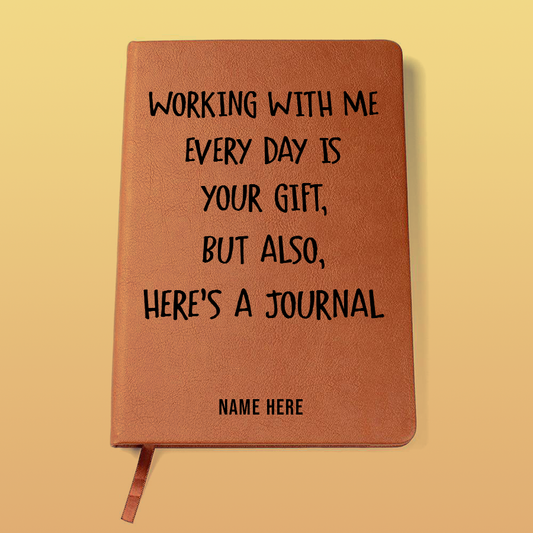 WORKING WITH ME
EVERY DAY IS
YOUR GIFT,
BUT ALSO,
HERE'S A JOURNAL
NAME HERE